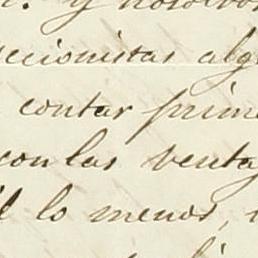 y nosotros
accionistas alg
contar prim
con las venta
lo menos,